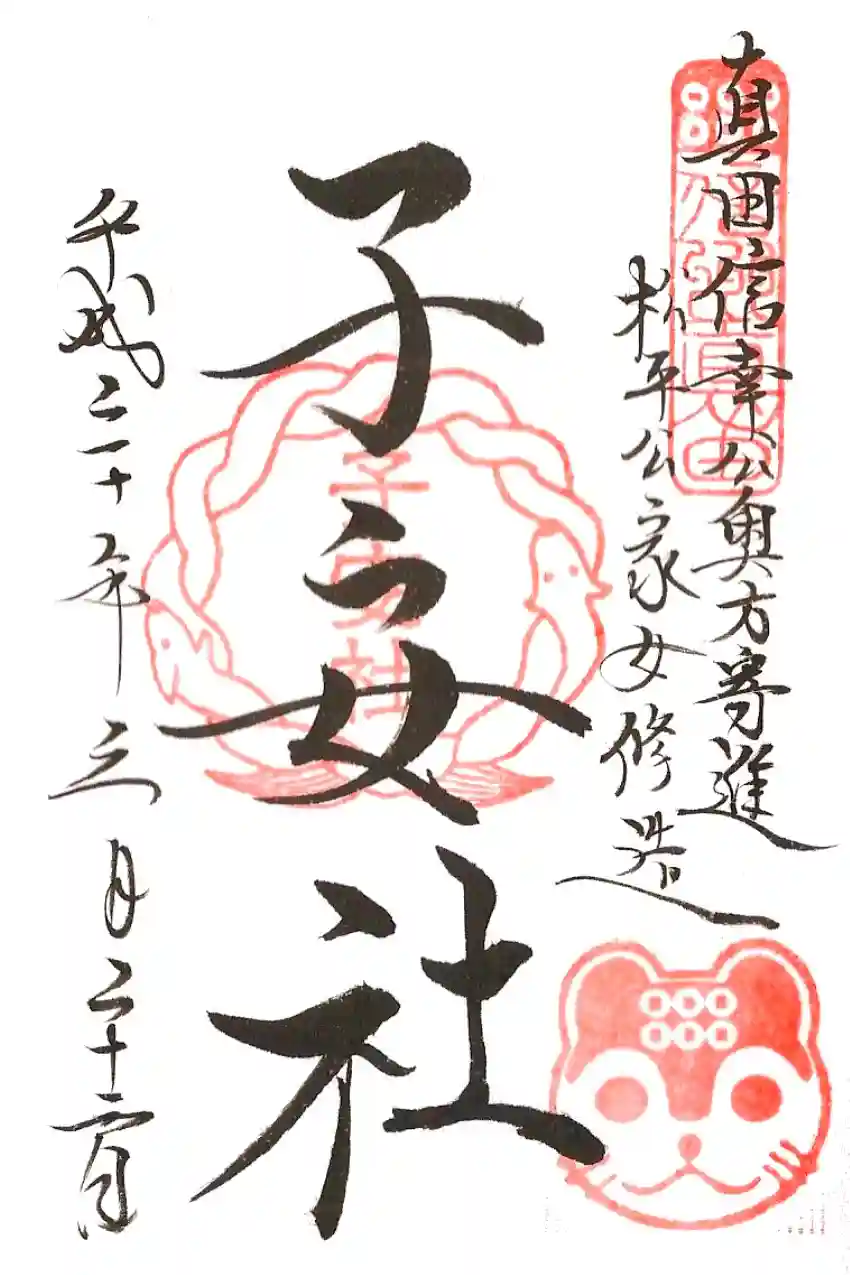 真田信幸公奥方寄進
松平公家女修造
子安社
子安社
平成二十年三月二十二日